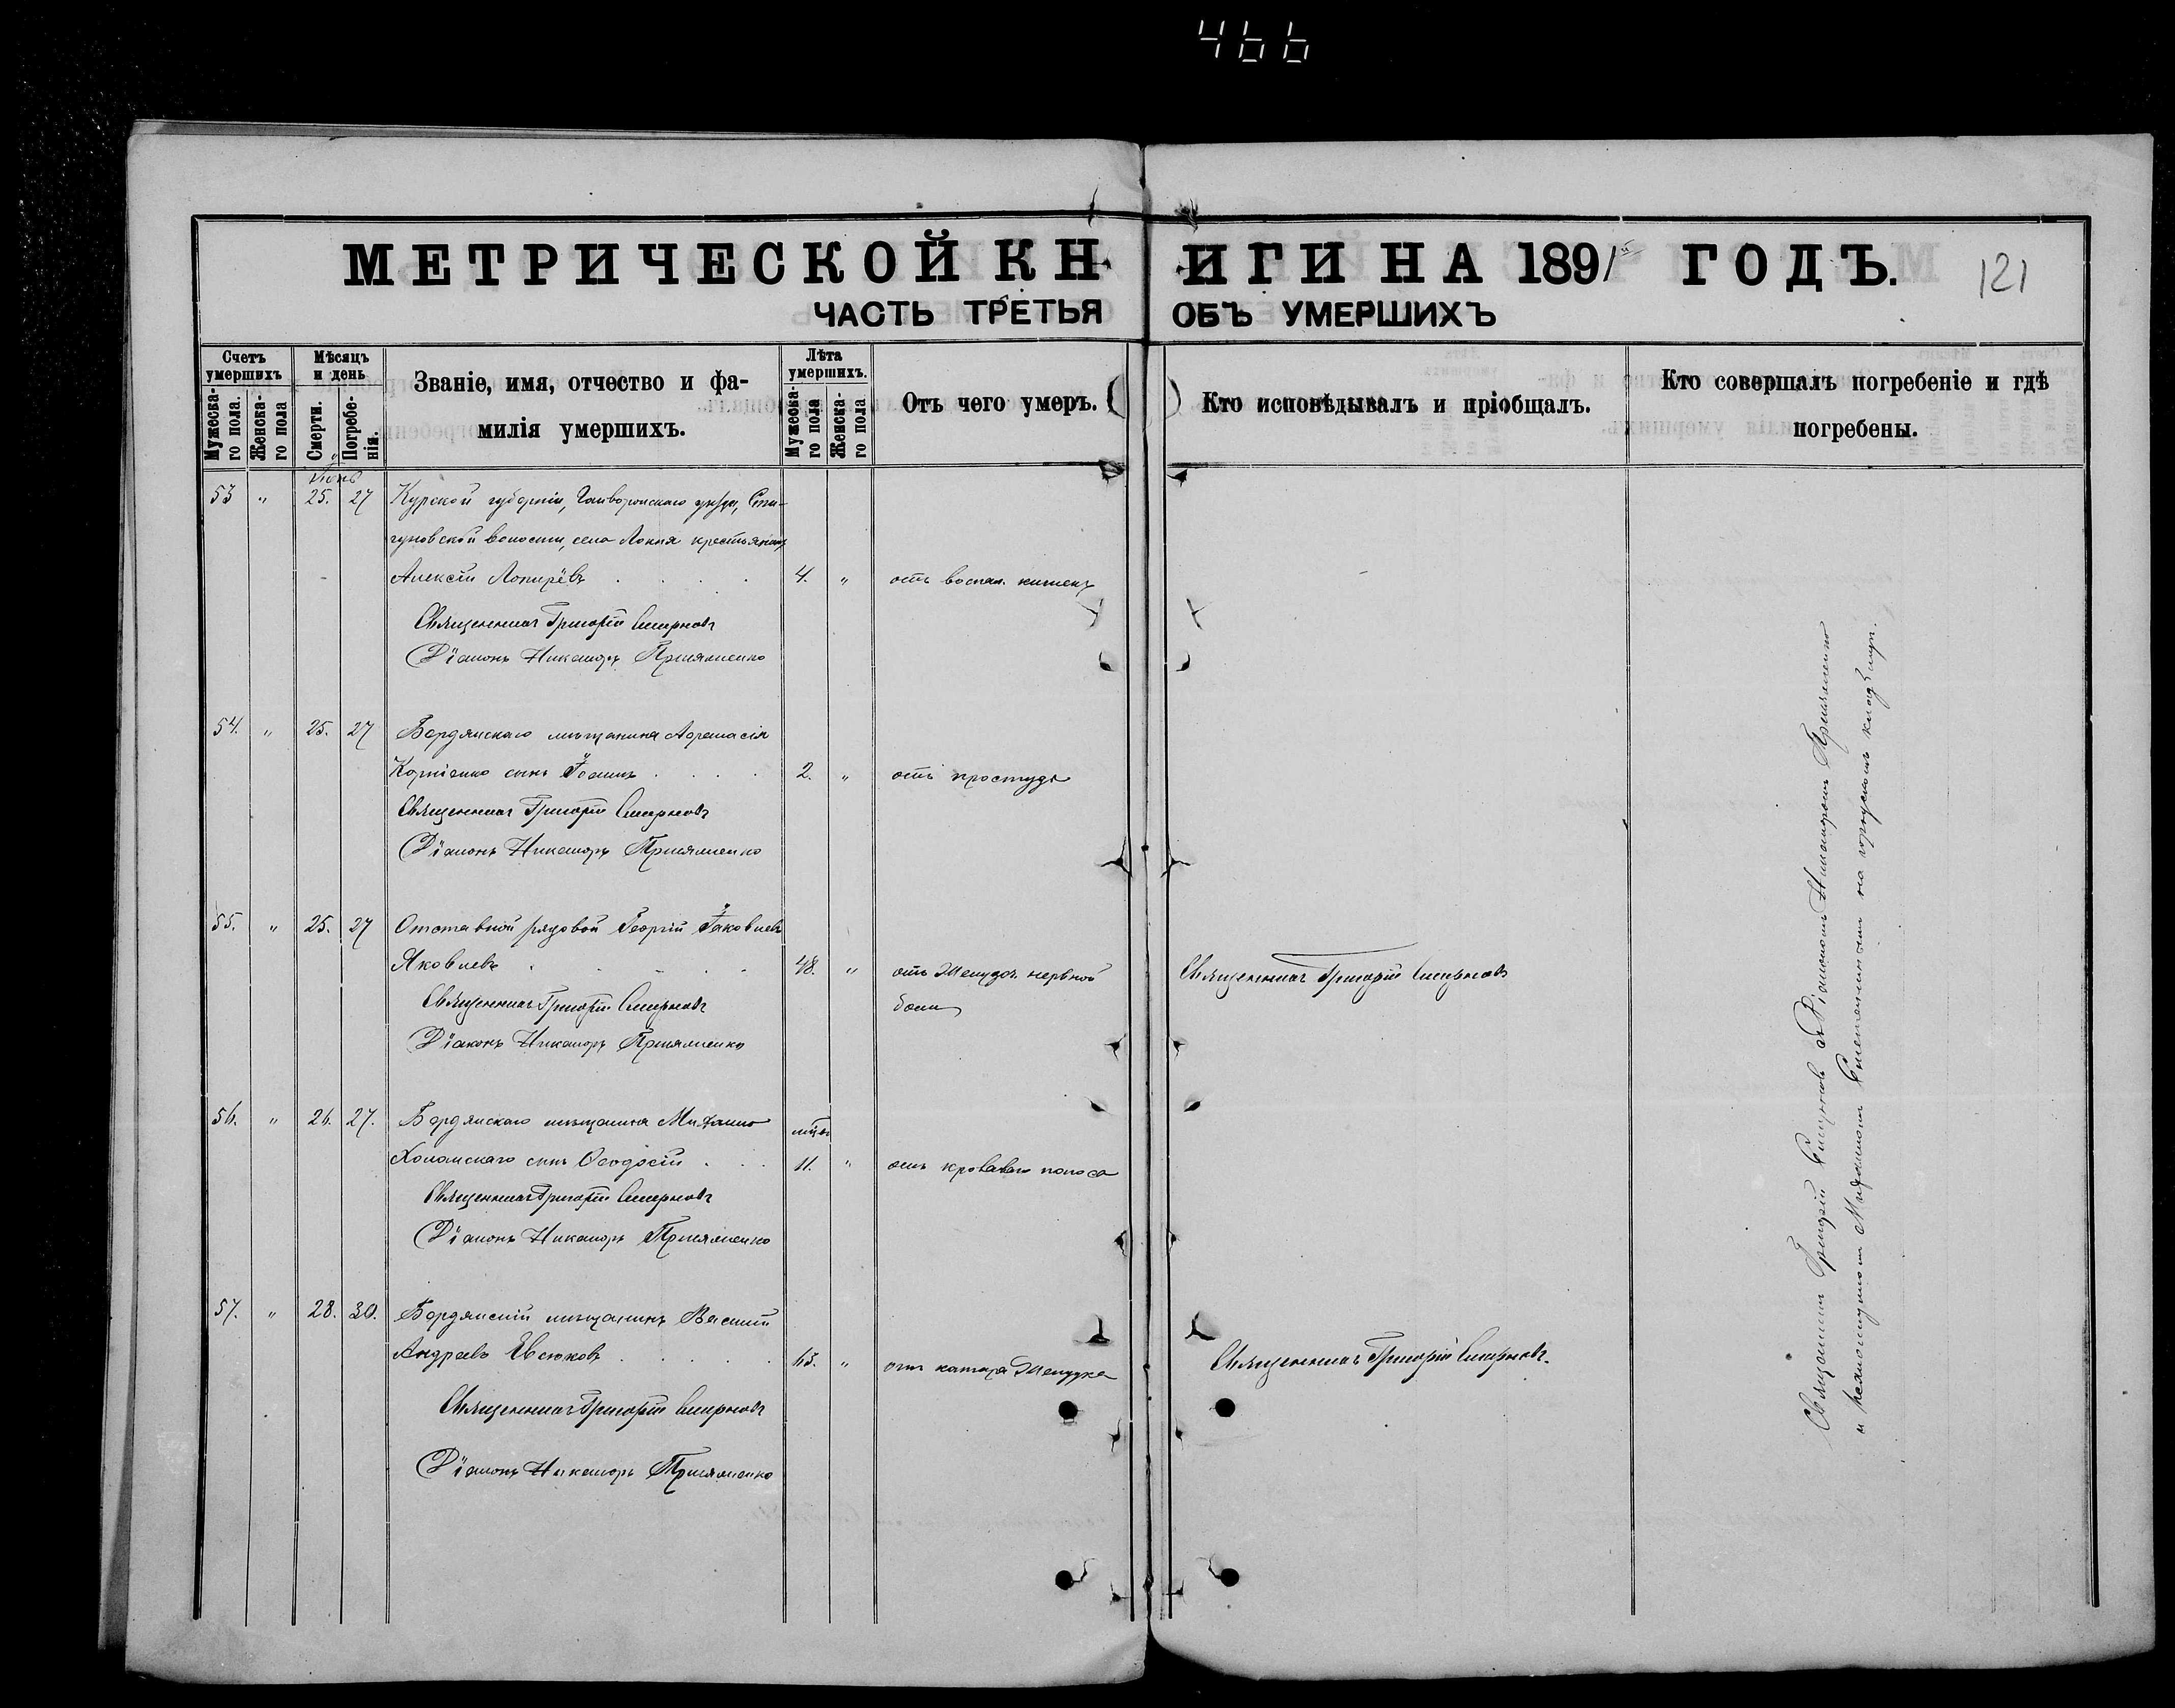 466
МЕТРИЧЕСКОЙ КНИГИ НА 1891й ГОДЪ.
121
ЧАСТЬ ТРЕТЬЯ ОБЪ УМЕРШИХЪ
Счетъ умершихъ
Мужеска-го пола.
Женска-го пола
Мѣсяцъ и день
Смерти.
Погребе-нія.
Званіе, имя, отчество и фа-
милія умершихъ.
Лѣта умершихъ.
Мужеска-го пола
Женска-го пола
Отъ чего умеръ.
Кто исповѣдывалъ и пріобщалъ.
Кто совершалъ погребеніе и гдѣ
погребены.
Іюнь
53 " 25. 27 Курской губерніи, Грайворонскаго уѣзда,
волости, села Локня крестьянинъ
Алексѣй 4. " отъ воспал. кишекъ
Священникъ Григорій Смирновъ
Діаконъ Никаноръ
54. " 25. 27 Бердянскаго мѣщанина Афанасія
Корніенко сынъ Іоаннъ 2. " отъ простуды
Священникъ Григорій Смирновъ
Діаконъ Никаноръ
55. " 25. 27 Отставной рядовой Георгій Іаковлевъ
Яковлевъ 48. " отъ желудоч. нервной Священникъ Григорій Смирновъ
боли
Священникъ Григорій Смирновъ
Діаконъ Никаноръ
56. " 26. 27. Бердянскаго мѣщанина Михаила
сынъ Ѳеодосій 11. " отъ кроваваго поноса
Священникъ Григорій Смирновъ
Діаконъ Никаноръ
57. " 28. 30. Бердянскій мѣщанинъ Василій
Андреевъ Евсюковъ 65. " отъ катара желудка Священникъ Григорій Смирновъ.
Священникъ Григорій Смирновъ
Діаконъ Никаноръ
Священникъ Григорій Смирновъ съ Діакономъ Никаноромъ
и псаломщикомъ на городскомъ кладбищѣ.